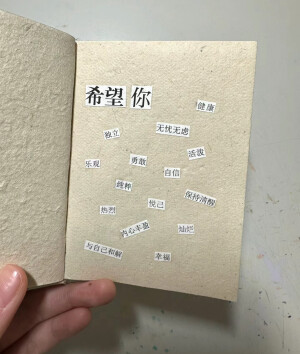 希望 你
健康
独立
无忧无虑
乐观
勇敢
活泼
自信
纯粹
保持清醒
热烈
悦己
内心丰盈
灿烂
与自己和解
幸福